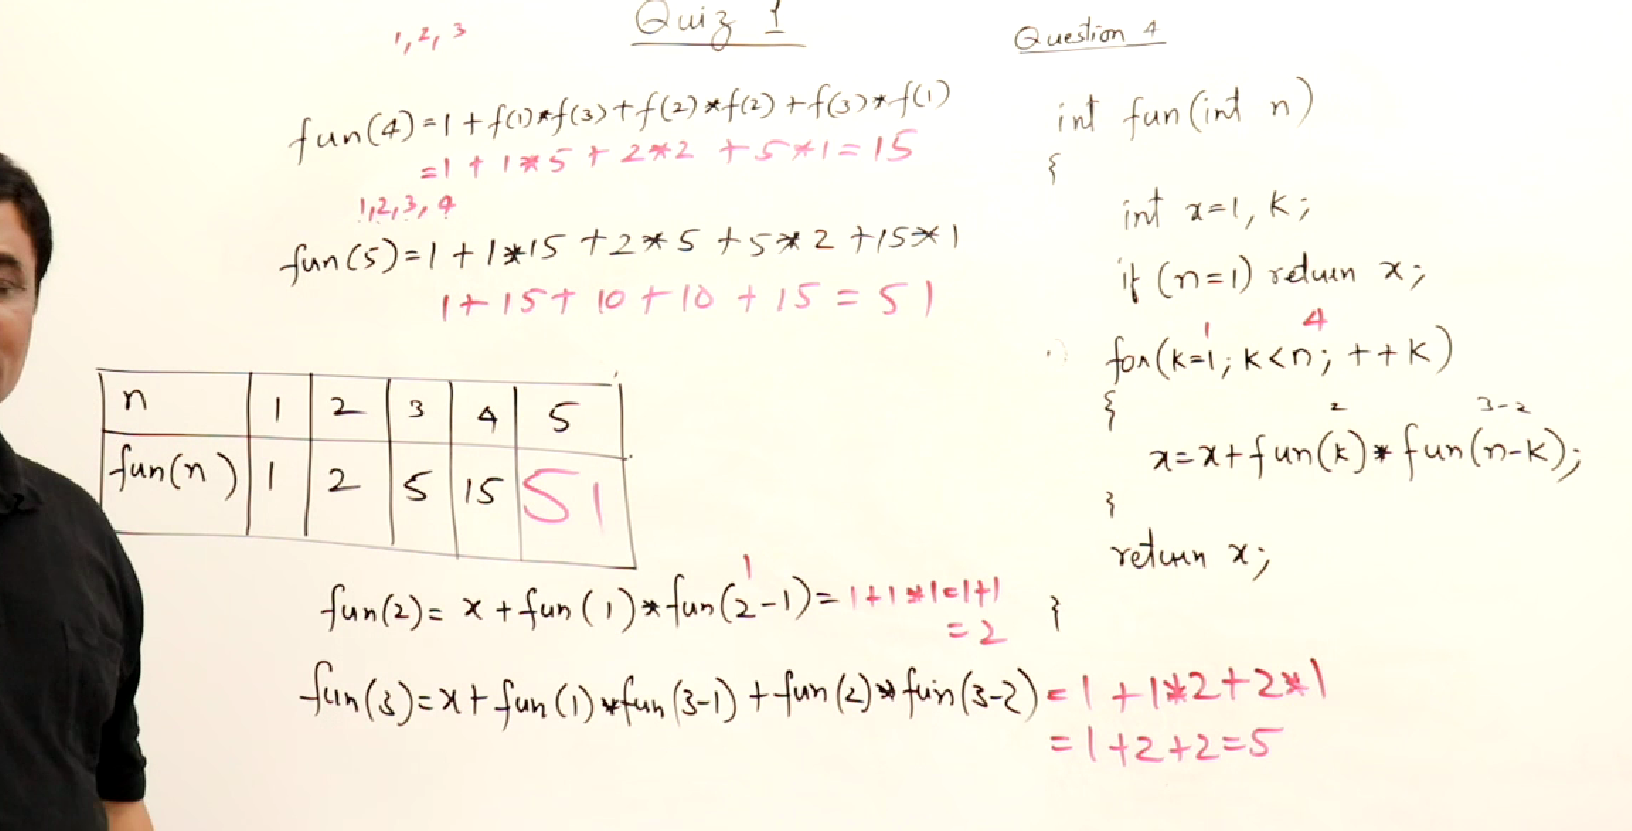 1, 2, 3
Quiz 1
fun(4)=1+f(1)*f(3)+f(2)*f(2)+f(3)*f(1)
=1+1*5+2*2+5*1=15
1,2,3,4
fun(5)=1+1*15+2*5+5*2+15*1
1+15+10+10+15=51
n 1 2 3 4 5
fun(n) 1 2 5 15 51
1
fun(2)= x+fun(1)*fun(2-1)=1+1*1=1+1
=2
fun(3)=x+fun(1)*fun(3-1)+fun(2)*fun(3-2)=1+1*2+2*1
=1+2+2=5
Question 4
int fun(int n)
{
int x=1, k;
if (n=1) return x;
1 4
for(k=1; k<n; ++k)
{
2 3-2
x=x+fun(k)*fun(n-k);
}
return x;
}